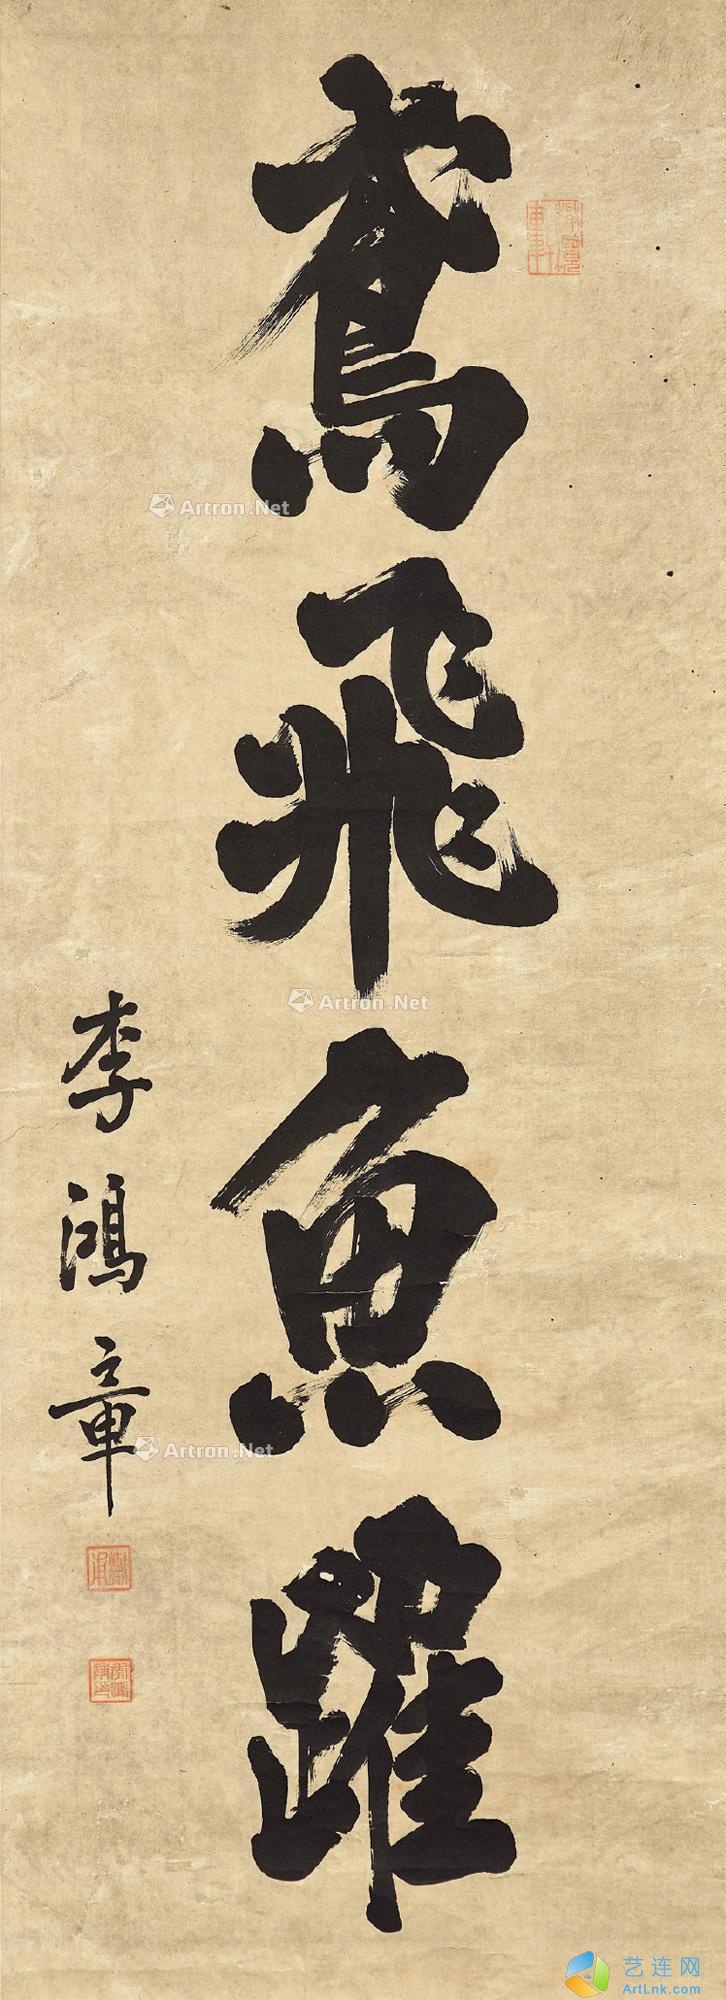 鳶飛魚躍
李鴻章
Artron.Net
Artron.Net
Artron.Net
艺连网
ArtLnk.com